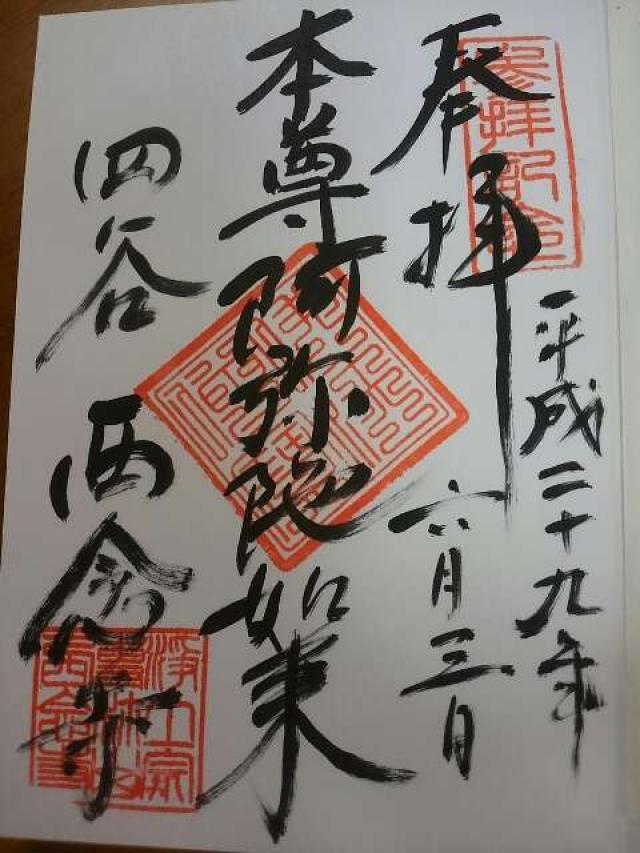 奉拝
平成二十九年
六月三日
本尊阿弥陀如来
四谷 西念寺
参拝記念